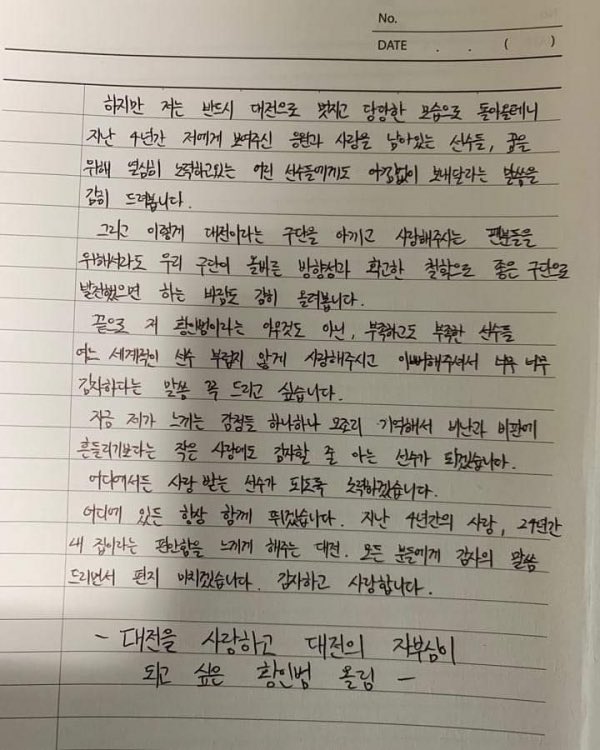 No.
DATE . . ( )
하지만 저는 반드시 대전으로 멋지고 당당한 모습으로 돌아올테니
지난 4년간 저에게 보여주신 응원과 사랑을 남아있는 선수들, 꿈을
위해 열심히 노력하고있는 어린 선수들에게도 아낌없이 보내달라는 말씀을
감히 드려봅니다.
그리고 이렇게 대전이라는 구단을 아끼고 사랑해주시는 팬분들을
위해서라도 우리 구단이 올바른 방향성과 확고한 철학으로 좋은 구단으로
발전했으면 하는 바람도 감히 올려봅니다.
끝으로 저 황인범이라는 아무것도 아닌, 부족하고도 부족한 선수를
여느 세계적인 선수 부럽지 않게 사랑해주시고 이뻐해주셔서 너무 너무
감사하다는 말씀 꼭 드리고 싶습니다.
지금 제가 느끼는 감정들 하나하나 모조리 기억해서 비난과 비판에
흔들리기보다는 작은 사랑에도 감사할 줄 아는 선수가 되겠습니다.
어디에서든 사랑 받는 선수가 되도록 노력하겠습니다.
어디에 있든 항상 함께 뛰겠습니다. 지난 4년간의 사랑, 24년간
내 집이라는 편안함을 느끼게 해주는 대전. 모든 분들에게 감사의 말씀
드리면서 편지 마치겠습니다. 감사하고 사랑합니다.
- 대전을 사랑하고 대전의 자부심이
되고 싶은 황인범 올림 -